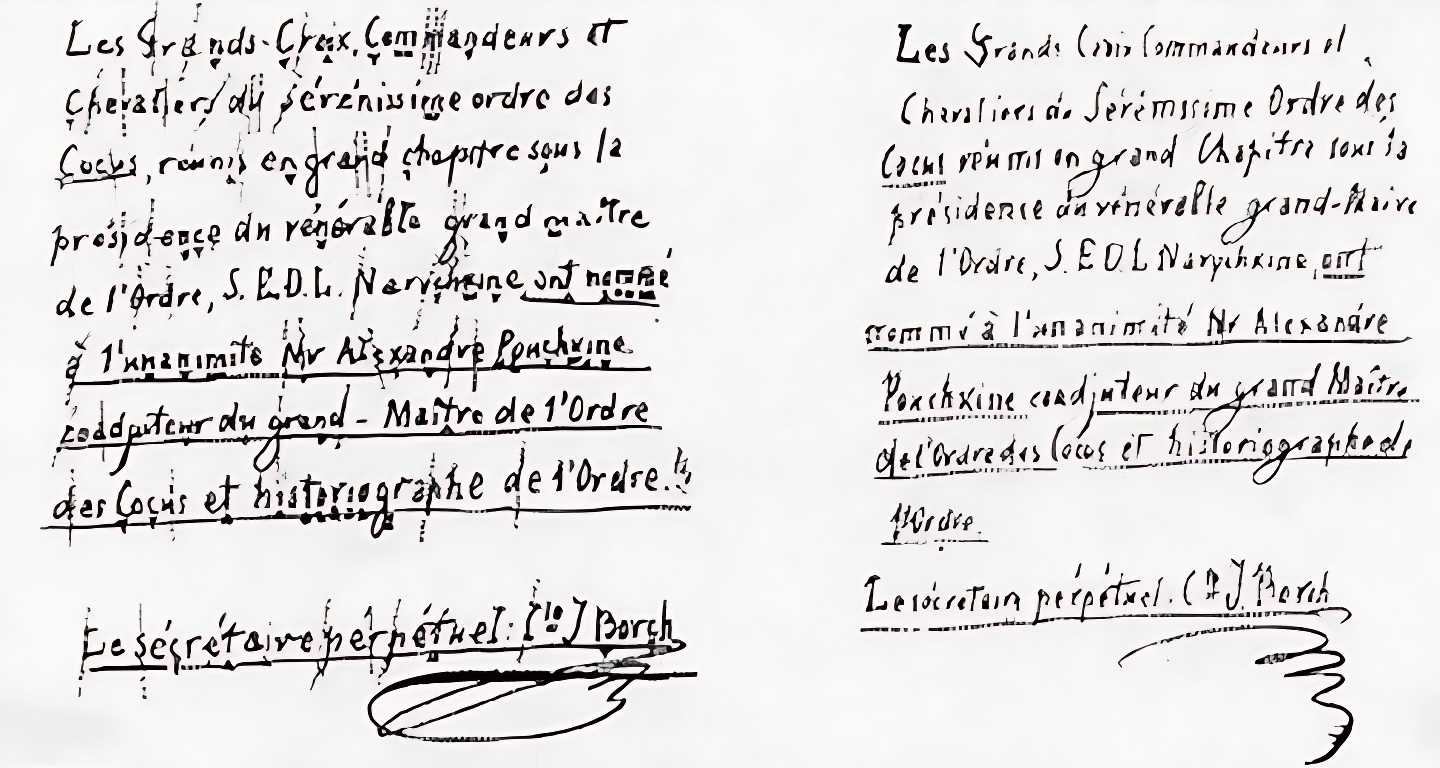 Les Grands-Croix, Commandeurs et
Chevaliers du sérénissime ordre des
Cocus, réunis en grand chapitre sous la
présidence du vénérable grand maître
de l'Ordre, S. E. D. L. Narychkine, ont nommé
à l'unanimité Mr Alexandre Pouchkine
coadjuteur du grand-Maître de l'Ordre
des Cocus et historiographe de l'Ordre.
Le secrétaire perpétuel: Borch
Les Grands Croix Commandeurs et
Chevaliers du Sérénissime Ordre des
Cocus réunis en grand Chapitre sous la
présidence du vénérable grand-Maire
de l'Ordre, S. E D. L Narychkine, ont
nommé à l'unanimité Mr Alexandre
Pouchkine coadjuteur du grand Maître
de l'Ordre des Cocus et historiographe de
l'Ordre.
Le sécretair perpétuel. Borch